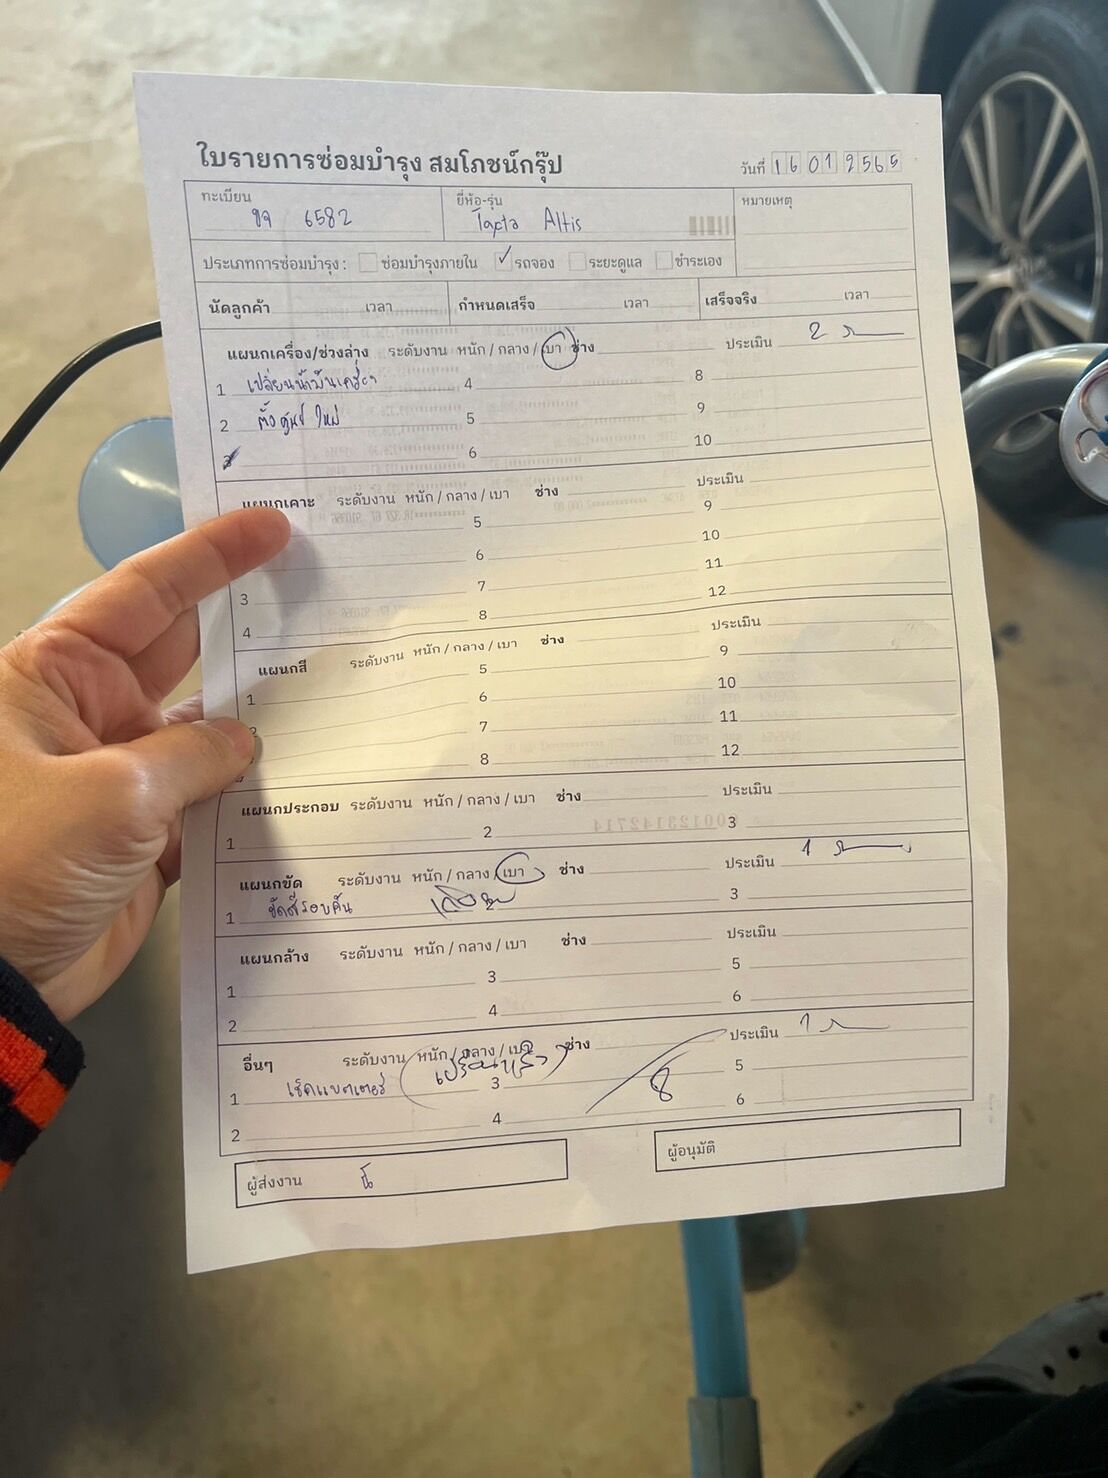 ใบรายการซ่อมบำรุง สมโภชน์กรุ๊ป
วันที่ 16 01 2565
ทะเบียน 6582
ยี่ห้อ-รุ่น Altis
หมายเหตุ
ประเภทการซ่อมบำรุง : ซ่อมบำรุงภายใน ✓ รถจอง ระยะดูแล ชำระเอง
นัดลูกค้า เวลา กำหนดเสร็จ เวลา เสร็จจริง เวลา
แผนกเครื่อง/ช่วงล่าง ระดับงาน หนัก / กลาง / เบา ช่าง ประเมิน 2
1 เปลี่ยนน้ำมันเครื่อง 4 8
2 ตั้งศูนย์ ใหม่ 5 9
3 6 10
แผนกเคาะ ระดับงาน หนัก / กลาง / เบา ช่าง ประเมิน
5 9
6 10
3 7 11
4 8 12
แผนกสี ระดับงาน หนัก / กลาง / เบา ช่าง ประเมิน
1 5 9
2 6 10
7 11
8 12
แผนกประกอบ ระดับงาน หนัก / กลาง / เบา ช่าง ประเมิน
1 2 3
แผนกขัด ระดับงาน หนัก / กลาง / เบา ช่าง ประเมิน 1
1 ขัดสีรอบคัน 3
แผนกล้าง ระดับงาน หนัก / กลาง / เบา ช่าง ประเมิน
1 3 5
2 4 6
อื่นๆ ระดับงาน หนัก / กลาง / เบา ช่าง ประเมิน 1
1 เช็คแบตเตอรี่ 3 8 5
2 4 6
ผู้ส่งงาน
ผู้อนุมัติ